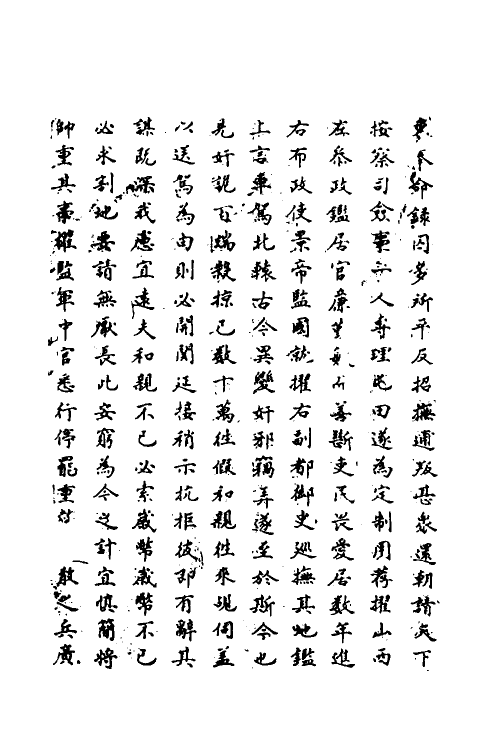 東奉部錄囚多所平反招撫逋叛甚衆還朝請天下
按察司僉事一人專理屯田遂為定制用荐擢山西
左參政鑑居官廉善斷吏民咸愛居數年進
右布政使景帝監國就擢右副都御史巡撫其地鑑
上言車駕北轅古今異變奸邪竊弄遂至於斯今也
先奸詭百端殺掠已數十萬往假和親往來覘伺蓋
以送駕為由則必開關延接稍示抗拒彼即有辭其
謀既深我慮宜遠夫和親不已必索歲幣歲幣不已
必求割地要請無厭長此安窮為今之計宜慎簡將
帥重其事權監軍中官悉行停罷重 散之兵廣